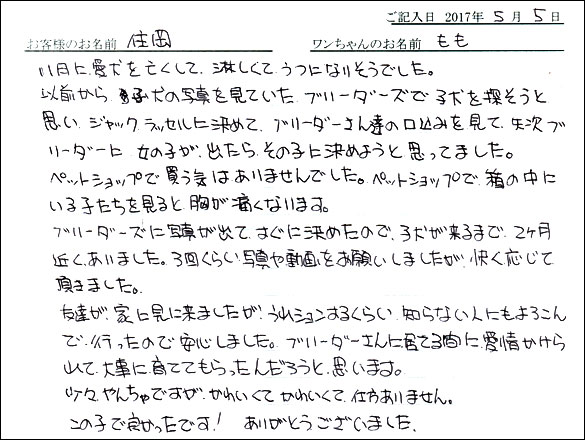 ご記入日 2017年 5月 5日
お客様のお名前 住岡 ワンちゃんのお名前 もも
11月に愛犬を亡くして、淋しくて、うつになりそうでした。
以前から 子犬の写真を見ていた、ブリーダーズで子犬を探そうと
思い、ジャックラッセルに決めて、ブリーダーさん達の口込みを見て、矢次ブ
リーダーに 女の子が、出たら、その子に決めようと思ってました。
ペットショップで買う気はありませんでした。ペットショップで、箱の中に
いる子たちを見ると、胸が痛くなります。
ブリーダーズに写真が出て、すぐに決めたので、子犬が来るまで、2ヶ月
近く、ありました。3回くらい、写真や動画をお願いしましたが、快く応じて
頂きました。
友達が、家に見に来ましたが、うれションするくらい、知らない人にもよろこん
で、行ったので安心しました。ブリーダーさんに居てる間に、愛情かけら
れて、大事に育ててもらったんだろうと、思います。
少々、やんちゃですが、かわいくてかわいくて、仕方ありません。
この子で良かったです! ありがとうございました。